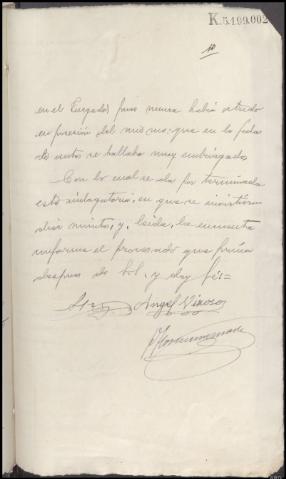 K.5.109.002
10
en el Juzgado, pero nunca había estado
en prisión del mismo; que en la fecha
de autos se hallaba muy embriagado
Con lo cual se da por terminada
esta indagatoria, en que se invirtieron
diez minutos, y, leída, la encuentra
conforme el procesado que firma
despues de S.S. y doy fé:=
Angel Vinoso